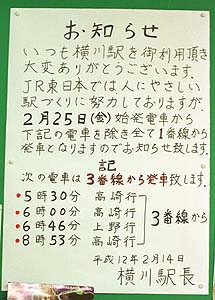 お知らせ
いつも横川駅を御利用頂き
大変ありがとうございます。
JR東日本では人にやさしい
駅づくりに努力しておりますが、
2月25日(金)始発電車から
下記の電車を除き全て1番線から
発車となりますのでお知らせ致します。
記
次の電車は3番線から発車致します。
•5時30分 高崎行
•6時00分 高崎行
•6時46分 上野行
•8時53分 高崎行
3番線から
平成12年2月14日
横川駅長